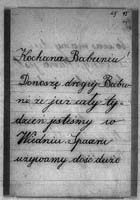 Kochana Babuniu!
Donoszę drogiej Babu-
ni że już cały ty-
dzień jesteśmy w
Wiedniu
używamy dość dużo